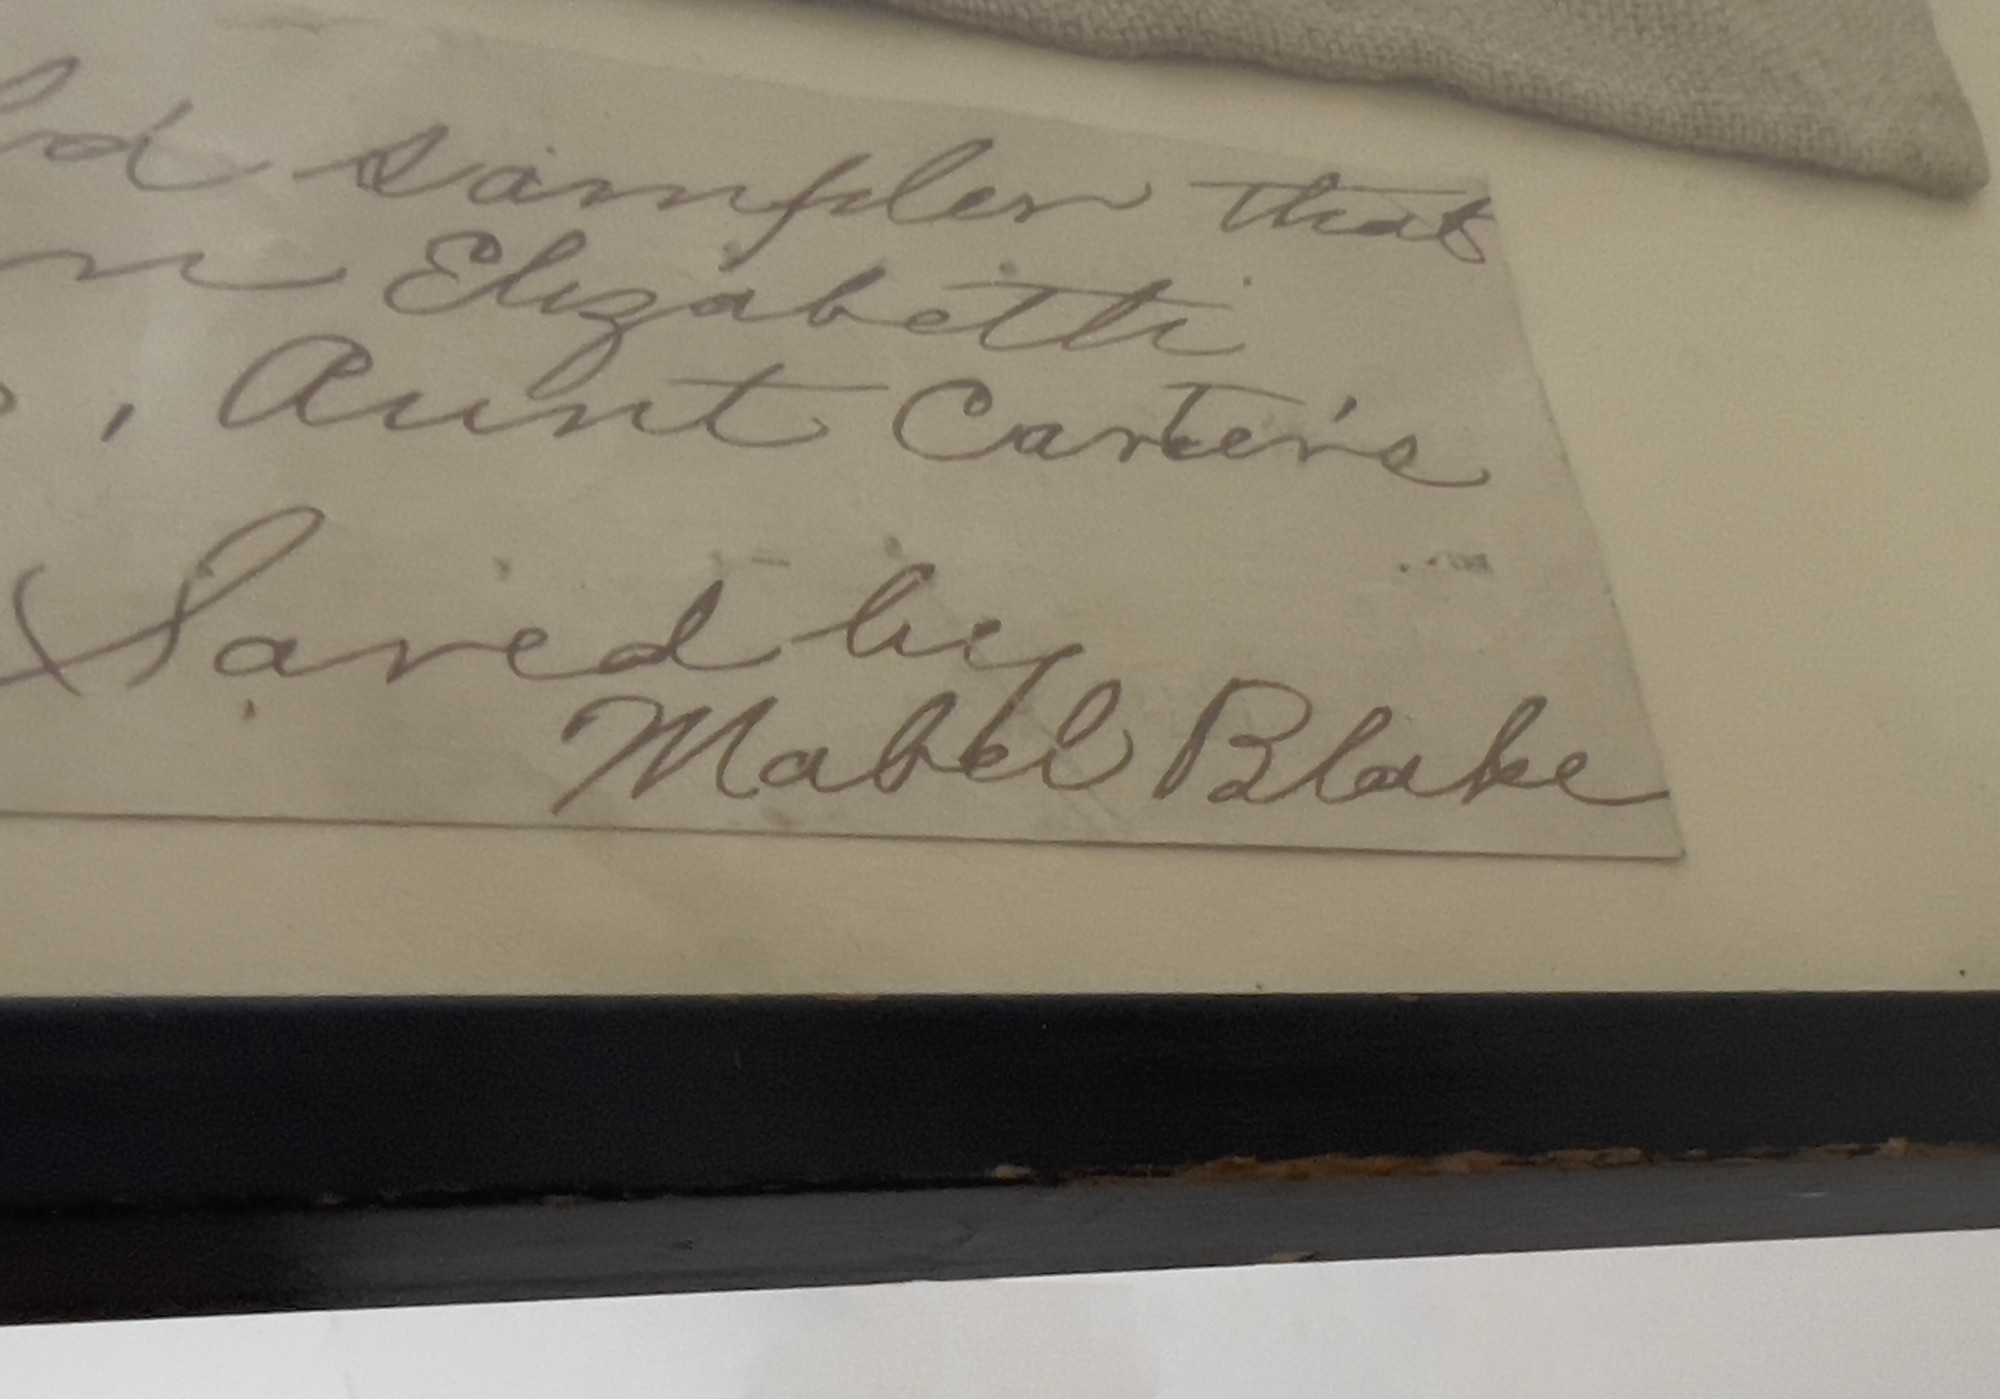 ld sampler that
Elizabeth
, Aunt Carter's
Saved by
Mabel Blake